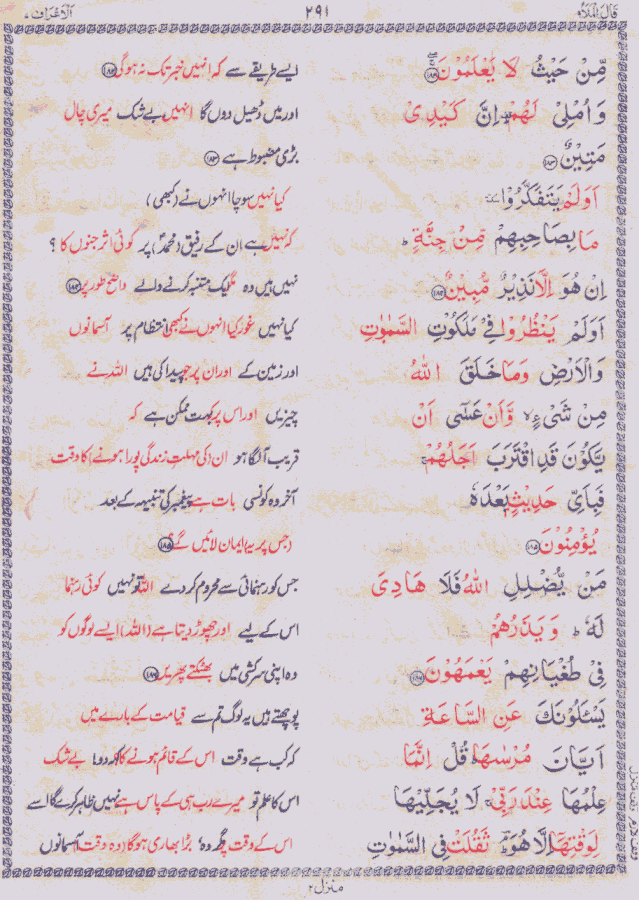 قَالَ الْمَلَاُ ٢٩١ اَلْاَعْرَاف ٧
مِّنْ حَيْثُ لَا يَعْلَمُوْنَ ﴿١٨٢﴾ ایسے طریقے سے کہ انہیں خبر تک نہ ہوگی ﴿١٨٢﴾
وَاُمْلِىْ لَهُمْ اِنَّ كَيْدِىْ اور میں ڈھیل دوں گا انہیں بے شک میری چال
مَتِيْنٌ ﴿١٨٣﴾ بڑی مضبوط ہے ﴿١٨٣﴾
اَوَلَمْ يَتَفَكَّرُوْا کیا نہیں سوچا انہوں نے (کبھی)
مَا بِصَاحِبِهِمْ مِّنْ جِنَّةٍ ط کہ نہیں ہے ان کے رفیق (محمدؐ) پر کوئی اثر جنوں کا ؟
اِنْ هُوَ اِلَّا نَذِيْرٌ مُّبِيْنٌ ﴿١٨٤﴾ نہیں ہیں وہ مگر ایک متنبہ کرنے والے واضح طور پر ﴿١٨٤﴾
اَوَلَمْ يَنْظُرُوْا فِىْ مَلَكُوْتِ السَّمٰوٰتِ کیا نہیں غور کیا انہوں نے کبھی انتظام پر آسمانوں
وَالْاَرْضِ وَمَا خَلَقَ اللّٰهُ اور زمین کے اور ان پر جو پیدا کی ہیں اللہ نے
مِنْ شَىْءٍ وَّاَنْ عَسٰٓى اَنْ چیزیں اور اس پر کہ بہت ممکن ہے کہ
يَّكُوْنَ قَدِ اقْتَرَبَ اَجَلُهُمْ قریب آ لگا ہو ان (کی مہلتِ زندگی پورا ہونے) کا وقت
فَبِاَىِّ حَدِيْثٍ بَعْدَهٗ آخر وہ کونسی بات ہے پیغمبر کی تنبیہ کے بعد
يُؤْمِنُوْنَ ﴿١٨٥﴾ (جس پر یہ ایمان لائیں گے؟ ﴿١٨٥﴾
مَنْ يُّضْلِلِ اللّٰهُ فَلَا هَادِىَ جس کو رہنمائی سے محروم کر دے اللہ تو نہیں کوئی رہنما
لَهٗ ط وَيَذَرُهُمْ اس کے لیے اور چھوڑ دیتا ہے (اللہ) ایسے لوگوں کو
فِىْ طُغْيَانِهِمْ يَعْمَهُوْنَ ﴿١٨٦﴾ وہ اپنی سرکشی میں بھٹکتے پھریں ﴿١٨٦﴾
يَسْئَلُوْنَكَ عَنِ السَّاعَةِ پوچھتے ہیں یہ لوگ تم سے قیامت کے بارے میں
اَيَّانَ مُرْسٰىهَا قُلْ اِنَّمَا کہ کب ہے وقت اس کے قائم ہونے کا کہہ دو! بے شک
عِلْمُهَا عِنْدَ رَبِّىْ لَا يُجَلِّيْهَا اس کا علم تو میرے رب ہی کے پاس ہے نہیں ظاہر کرے گا اسے
لِوَقْتِهَآ اِلَّا هُوَ ثَقُلَتْ فِى السَّمٰوٰتِ اس کے وقت پر مگر وہ بڑا بھاری ہوگا (وہ وقت) آسمانوں
منزل ٢